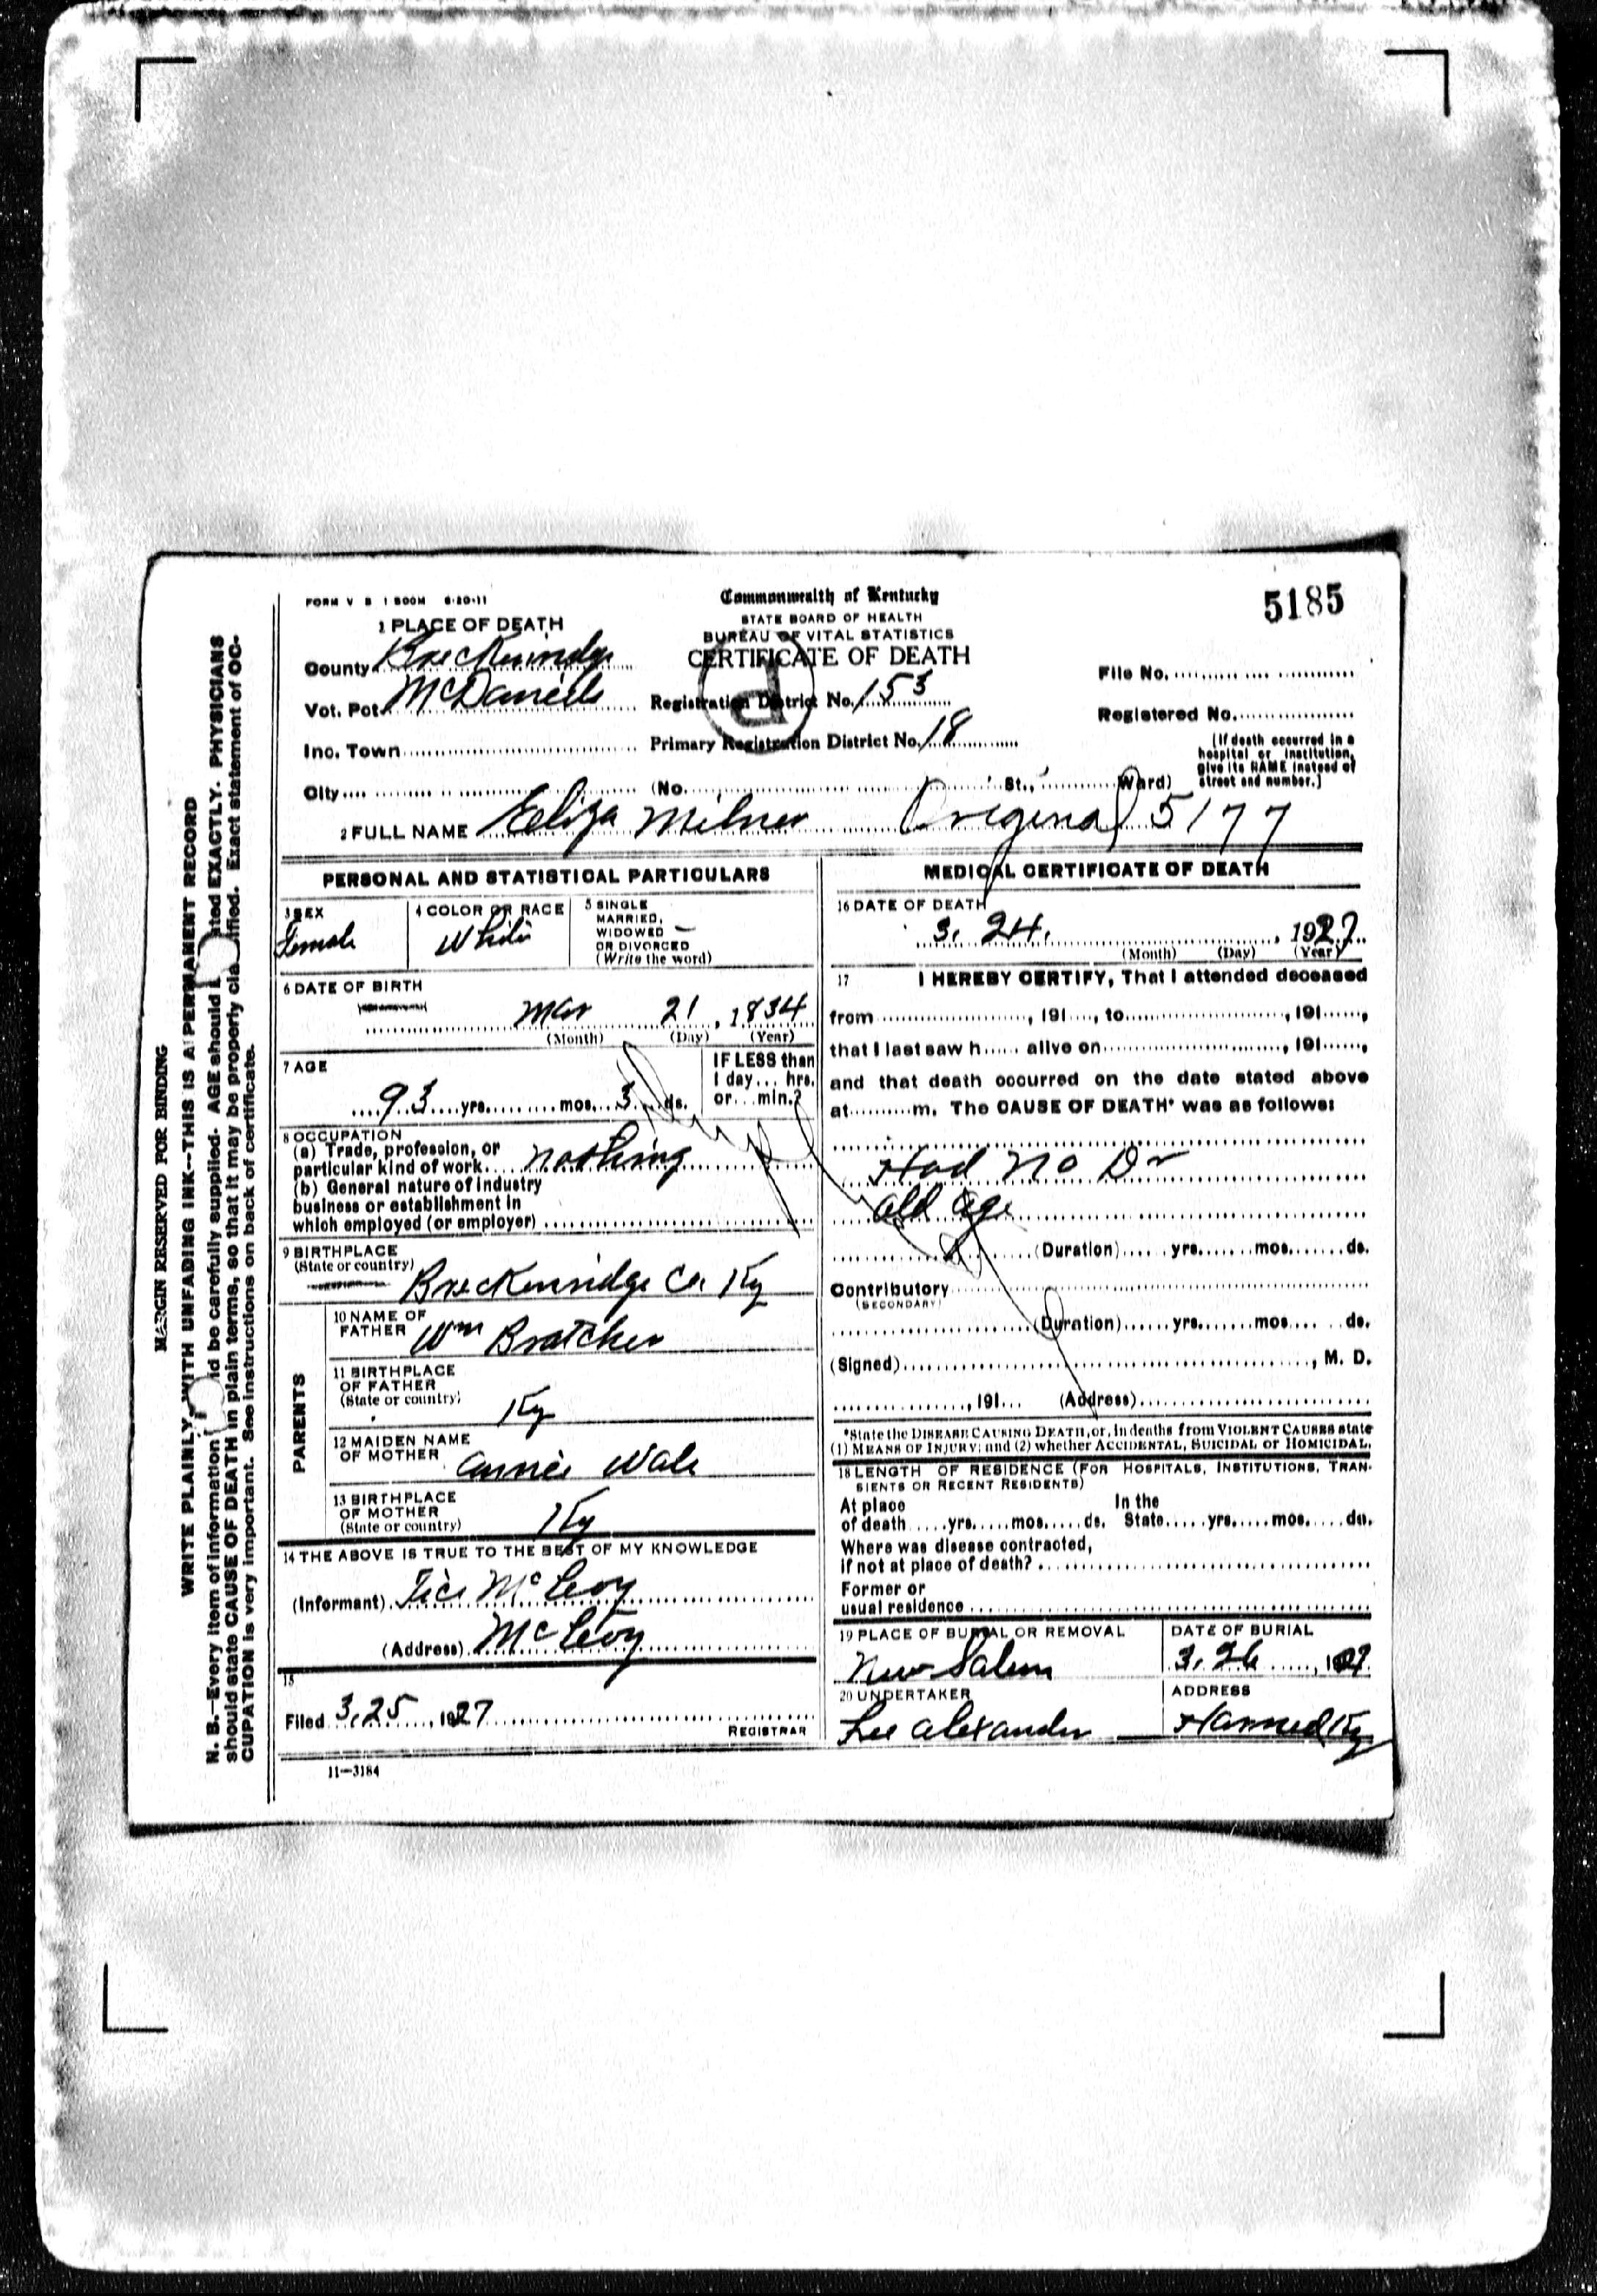 FORM V S 1 500M 6-20-11
Commonwealth of Kentucky
STATE BOARD OF HEALTH
BUREAU OF VITAL STATISTICS
CERTIFICATE OF DEATH
5185
1 PLACE OF DEATH
County Breckenridge
Vot. Pct. McDaniels
Inc. Town
City
Registration District No. 153
Primary Registration District No. 18
(No. St., Ward)
File No.
Registered No.
(If death occurred in a
hospital or institution,
give its NAME instead of
street and number.)
2 FULL NAME Eliza Milner Original 5177
PERSONAL AND STATISTICAL PARTICULARS
3 SEX
Female
4 COLOR OR RACE
White
5 SINGLE
MARRIED,
WIDOWED —
OR DIVORCED
(Write the word)
6 DATE OF BIRTH
Mar 21, 1834
(Month) (Day) (Year)
7 AGE
93 yrs. mos. 3 ds.
IF LESS than
1 day... hrs.
or... min.?
8 OCCUPATION
(a) Trade, profession, or
particular kind of work nothing
(b) General nature of industry
business or establishment in
which employed (or employer)
9 BIRTHPLACE
(State or country)
Breckenridge Co. Ky
PARENTS
10 NAME OF
FATHER Wm Bratcher
11 BIRTHPLACE
OF FATHER
(State or country)
Ky
12 MAIDEN NAME
OF MOTHER Annie Wale
13 BIRTHPLACE
OF MOTHER
(State or country) Ky
14 THE ABOVE IS TRUE TO THE BEST OF MY KNOWLEDGE
(Informant) Tice McCleoy
(Address) McCleoy
15
Filed 3.25, 1927
REGISTRAR
11—3184
MEDICAL CERTIFICATE OF DEATH
16 DATE OF DEATH
3. 24. , 1927
(Month) (Day) (Year)
17 I HEREBY CERTIFY, That I attended deceased
from , 191 , to , 191 ,
that I last saw h alive on , 191 ,
and that death occurred on the date stated above
at m. The CAUSE OF DEATH* was as follows:
Had no Dr
old age
(Duration) yrs. mos. ds.
Contributory
(SECONDARY)
(Duration) yrs. mos. ds.
(Signed) , M. D.
, 191 (Address)
*State the DISEASE CAUSING DEATH, or, in deaths from VIOLENT CAUSES state
(1) MEANS OF INJURY; and (2) whether ACCIDENTAL, SUICIDAL or HOMICIDAL.
18 LENGTH OF RESIDENCE (FOR HOSPITALS, INSTITUTIONS, TRAN-
SIENTS OR RECENT RESIDENTS)
At place In the
of death yrs. mos. ds. State yrs. mos. ds.
Where was disease contracted,
if not at place of death?
Former or
usual residence
19 PLACE OF BURIAL OR REMOVAL
New Salem
DATE OF BURIAL
3. 26 , 1927
20 UNDERTAKER
Lee Alexander
ADDRESS
Harned Ky
MARGIN RESERVED FOR BINDING
WRITE PLAINLY, WITH UNFADING INK--THIS IS A PERMANENT RECORD
N. B.—Every item of information should be carefully supplied. AGE should be stated EXACTLY. PHYSICIANS
should state CAUSE OF DEATH in plain terms, so that it may be properly classified. Exact statement of OC-
CUPATION is very important. See instructions on back of certificate.